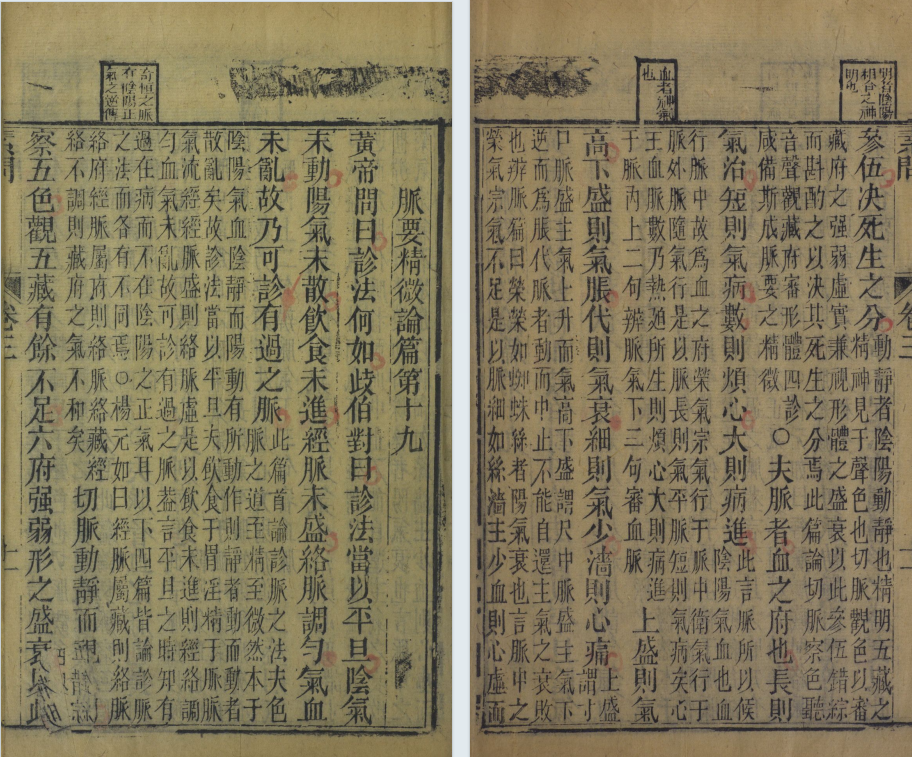 脈要精微論篇第十九
黃帝問曰診法何如歧伯對曰診法當以平旦陰氣
未動陽氣未散飲食未進經脈未盛絡脈調勻氣血
未亂故乃可診有過之脈
此篇首論診脈之法夫色
脈之道至精至微然本于
陰陽氣血陰靜而陽動有所動作則靜者動而動者
散亂矣故診法當以平旦夫飲食于胃淫精于脈脈
氣流經經脈盛則絡脈虛是以飲食未進則經絡調
勻血氣未亂故可診有過之脈葢言平旦之時知有
過在病而不在陰陽之正氣耳以下四篇皆論診脈
之法而各有不同焉○楊元如曰經脈屬藏則絡脈
絡府經脈屬府則絡脈絡藏經
絡不調則藏府之氣不和矣
切脈動靜而視精明
察五色觀五藏有餘不足六府强弱形之盛衰以此
素問
卷三
十
血者神氣也
明者陰陽
相合之神
明也
參伍決死生之分
動靜者陰陽動靜也精明五藏之
精神見于聲色也切脈觀色以審
藏府之强弱虛實兼視形體之盛衰以此參伍錯綜
而斟酌之以決其死生之分焉此篇論切脈察色聽
音聲觀藏府審形體四診
咸備斯成脈要之精微
○夫脈者血之府也長則
氣治短則氣病數則煩心大則病進
此言脈所以候
陰陽氣血也血
行脈中故爲血之府榮氣宗氣行于脈中衛氣行于
脈外脈隨氣行是以脈長則氣平脈短則氣病矣心
主血脈數乃熱廹所生則煩心大則病進
于脈內上二句辨脈氣下二句審血脈
上盛則氣
高下盛則氣脹代則氣衰細則氣少濇則心痛
上盛
謂寸
口脈盛主氣上升而氣高下盛謂尺中脈盛主氣下
逆而爲脹代脈者動而中止不能自還主氣之衰敗
也辨脈篇曰榮榮如蜘蛛絲者陽氣衰也言脈中之
榮氣宗氣不足是以脈細如絲濇主少血則心虛而